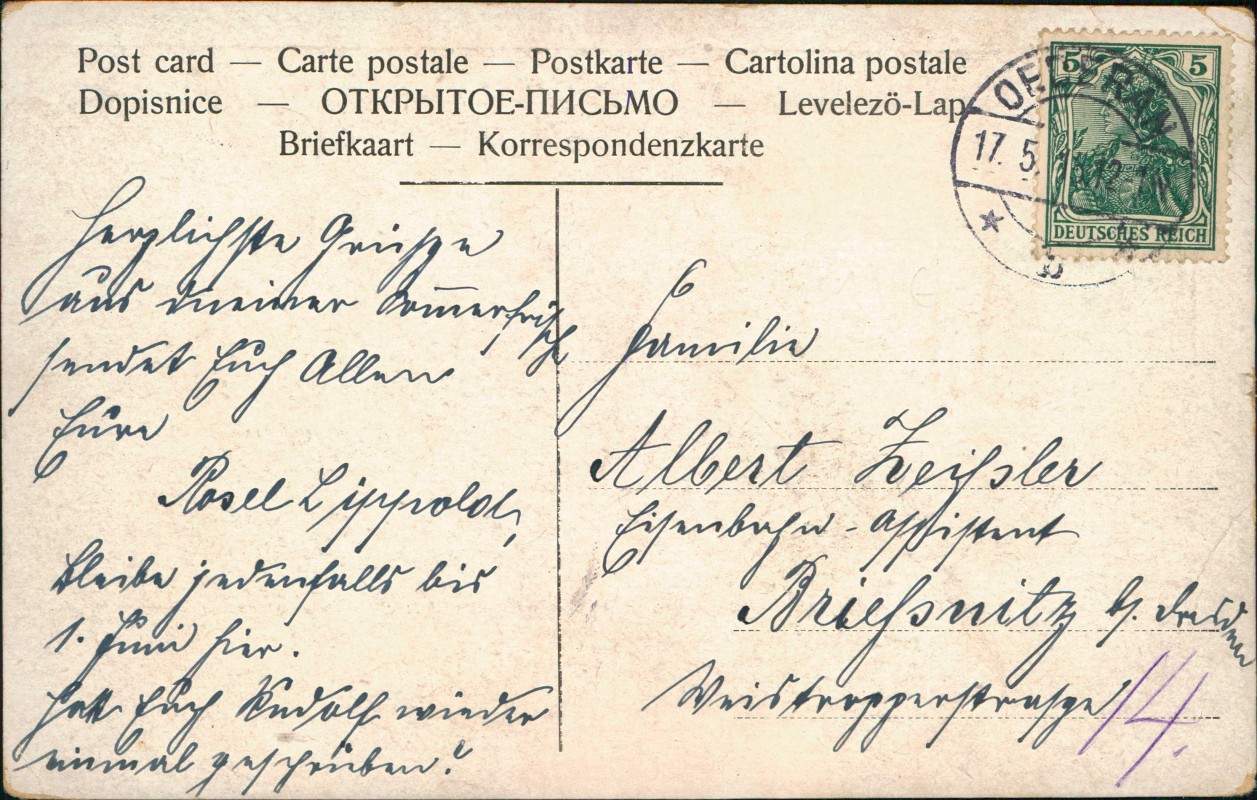 Post card — Carte postale — Postkarte — Cartolina postale
Dopisnice — ОТКРЫТОЕ-ПИСЬМО — Levelezö-Lap
Briefkaart — Korrespondenzkarte
5 5
DEUTSCHES REICH
OEDERAN
17. 5.
* b *
Herzlichste Grüsse
aus meiner Sommerfrische
sendet Euch Allen
Eure
Rosel Lippold,
bleibe jedenfalls bis
1. Juni hier.
Hat Euch Rudolf wieder
einmal geschrieben?
Familie
Albert Zeißler
Eisenbahn-Assistent
Brießnitz b/. Dresden
Weistropperstrasse 14.